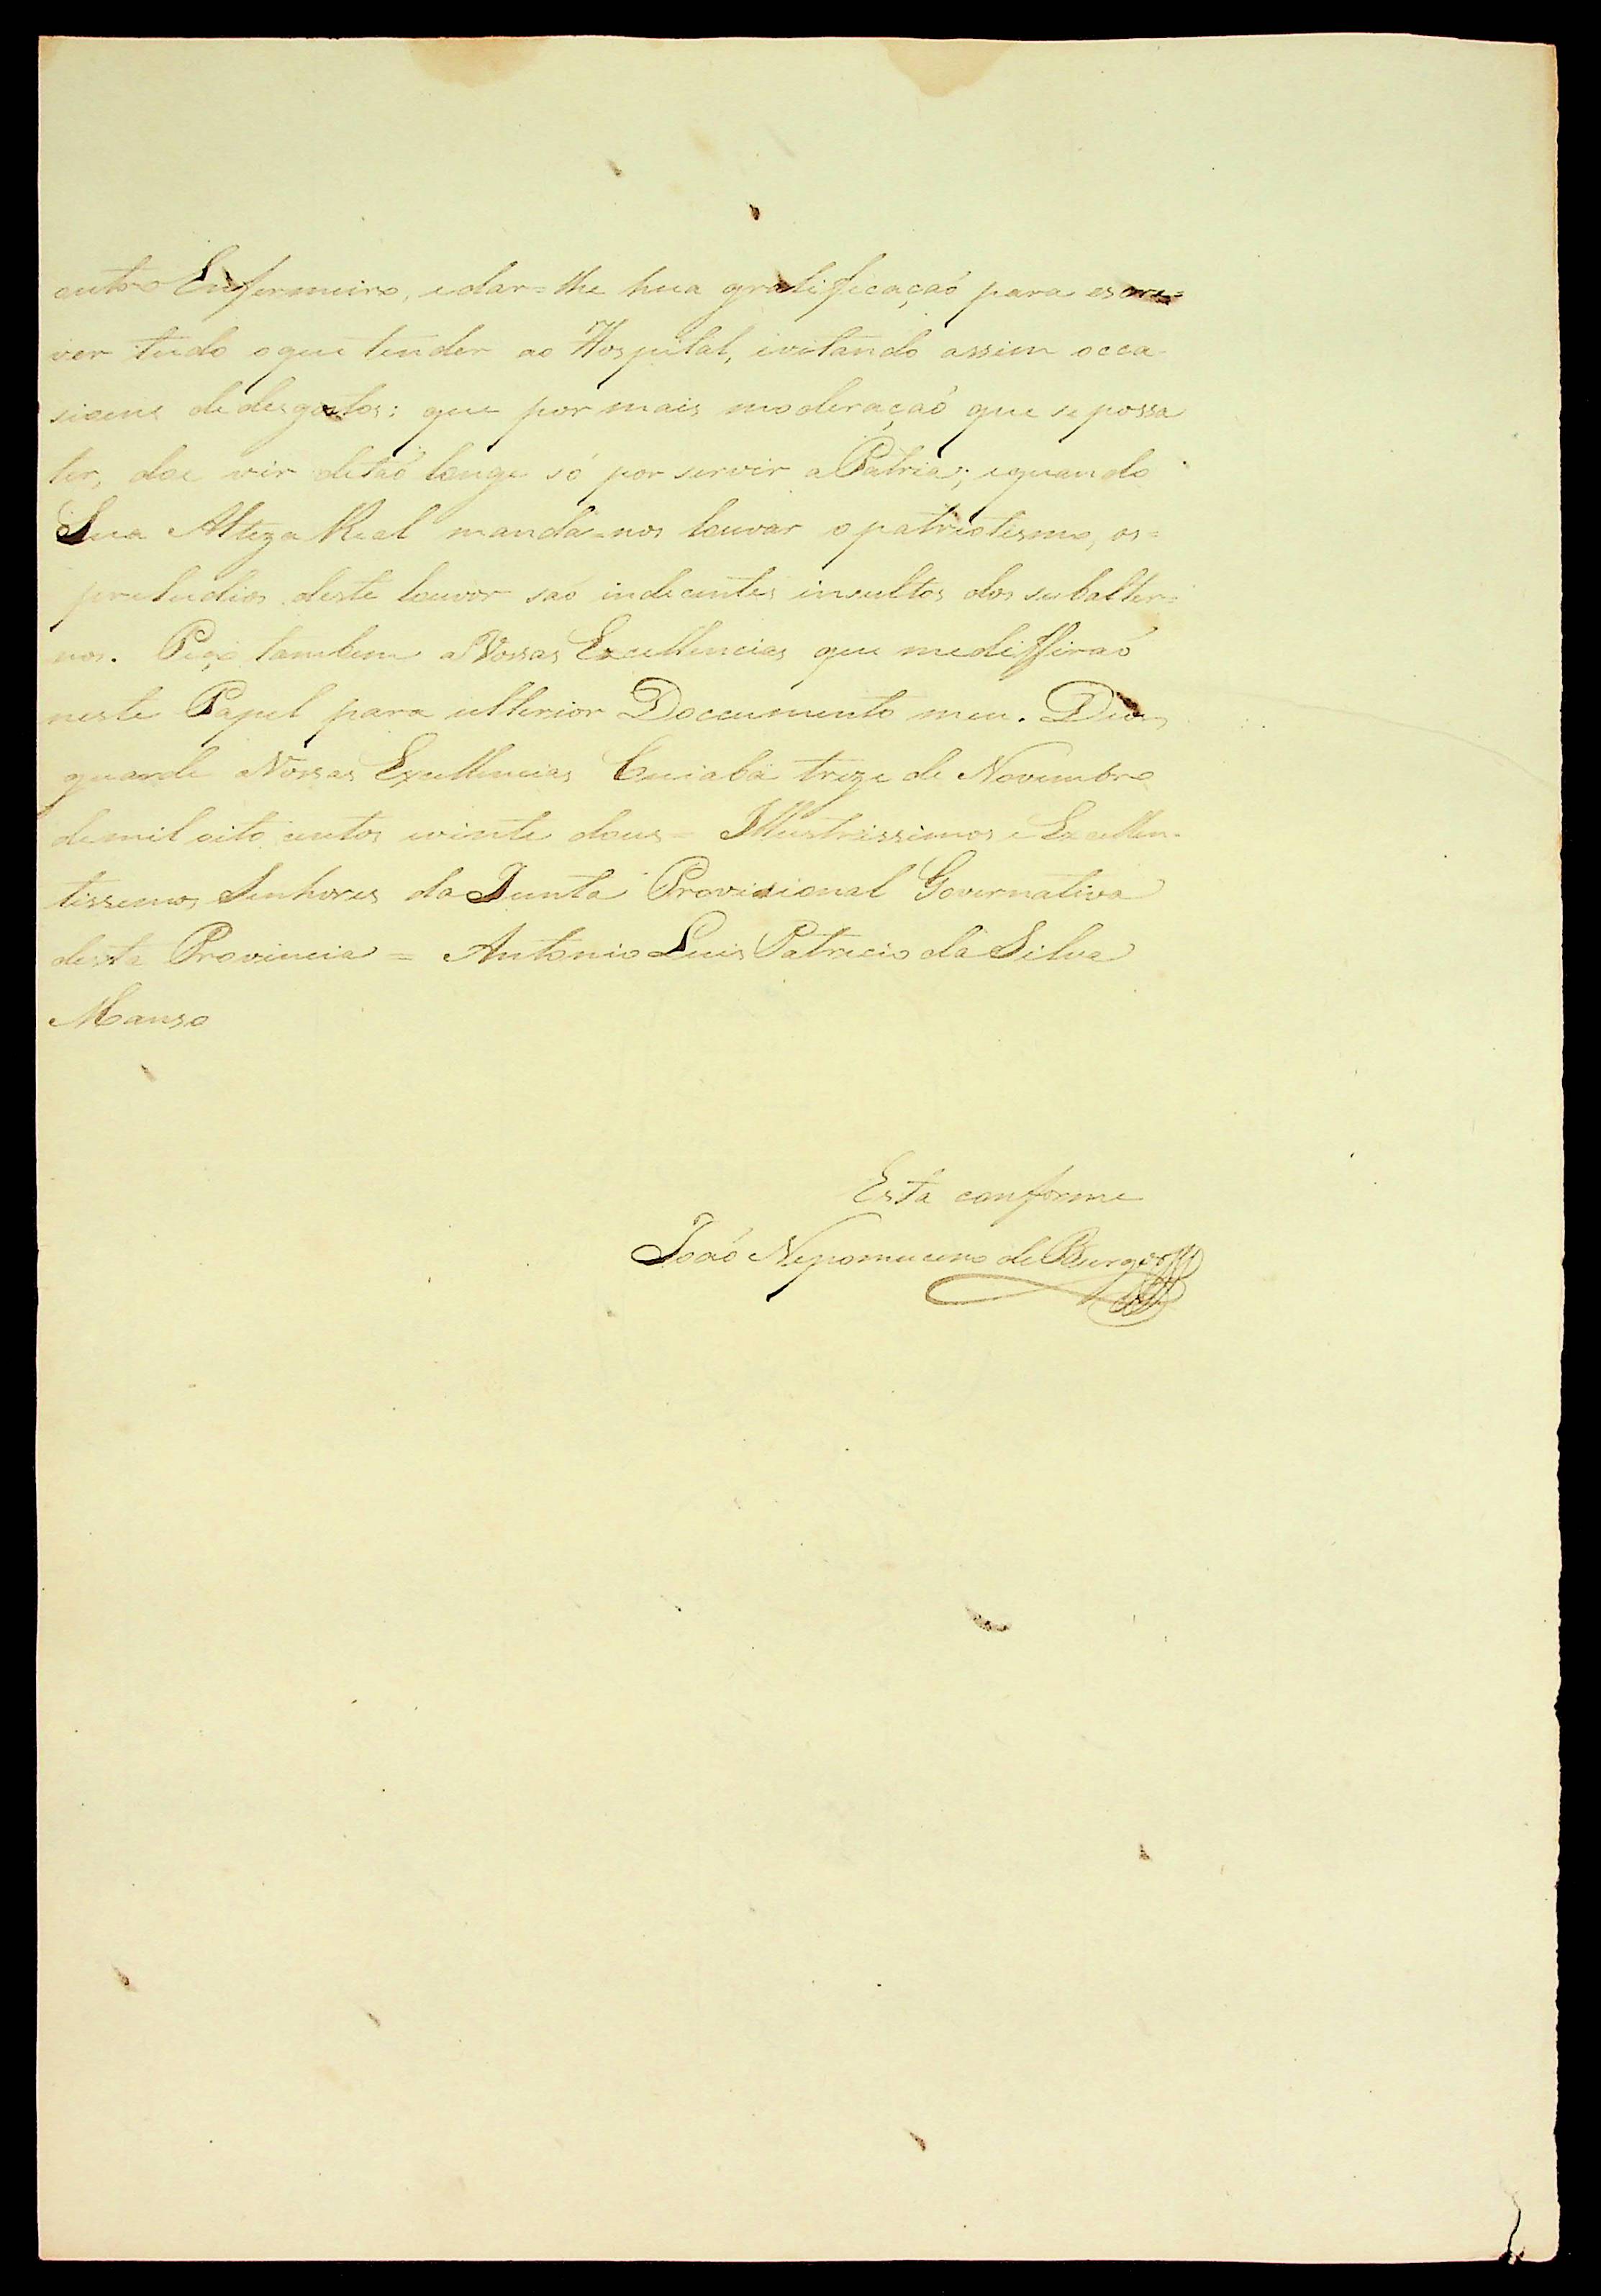 outro Enfermeiro, edar=lhe hua gratificaçaõ para escre=
ver tudo oque tender ao Hospital, evitando assim occa
sioens dedesgostos: que por mais moderaçaõ que sepossa
ter, doe vir detaõ longe só por servir aPatria; equando
Sua AltezaReal manda=nos louvar opatriotismo, os=
preludios deste louvor saõ indecentes insultos dos subalter=
nos. Peço tambem aVossas Excellencias que medeffiraõ
neste Papel para ulterior Doccumento meu. Deos
guarde aVossas Excellencias Cuiabá treze de Novembro
demil oito centos evinte dous = Illustrissimos e Excellen=
tissemos Senhores da Junta Provisional Governativa
desta Provincia = Antonio Luis Patricio da Silva
Manso
Está conforme
Joaõ Nepomuceno de Burgos